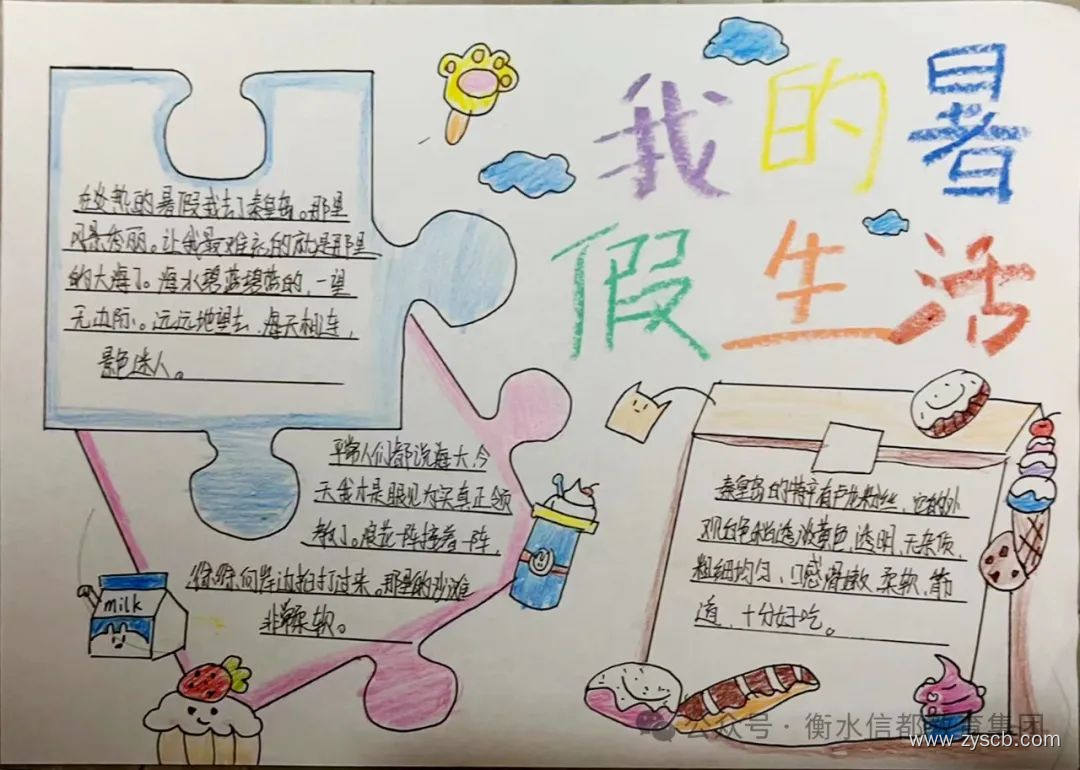 我的暑
假生活
在炎热的暑假我去了秦皇岛。那里
风景秀丽。让我最难忘的就是那里
的大海了。海水碧蓝碧蓝的，一望
无边际。远远地望去，海天相连，
景色迷人。
平常人们都说海大，今
天我才是眼见为实真正领
教了。浪花一阵接着一阵，
向岸边拍打过来。那里的沙滩
非常柔软。
秦皇岛的特产有卢龙粉丝，它的外
观白色稍透淡黄色，透明，无杂质，
粗细均匀、口感滑嫩、柔软、筋
道，十分好吃。
milk
公众号·衡水信都教育集团
www.zyscb.com